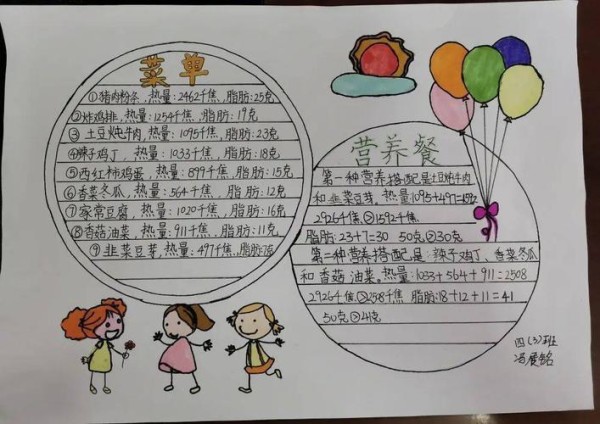 菜单
①猪肉粉条,热量:2462千焦,脂肪:25克
②炸鸡排,热量:1254千焦,脂肪:19克
③土豆炖牛肉,热量:1095千焦,脂肪:23克
④辣子鸡丁,热量:1033千焦,脂肪:18克
⑤西红柿鸡蛋,热量:899千焦,脂肪:15克
⑥香菜冬瓜,热量:564千焦,脂肪:12克
⑦家常豆腐,热量:1020千焦,脂肪:16克
⑧香菇油菜,热量:911千焦,脂肪:11克
⑨韭菜豆芽,热量:497千焦,脂肪:7克
营养餐
第一种营养搭配是:土豆炖牛肉
和韭菜豆芽,热量:1095+497=1592
2926千焦>1592千焦
脂肪:23+7=30 50克>30克
第二种营养搭配是:辣子鸡丁、香菜冬瓜
和香菇油菜。热量:1033+564+911=2508
2926千焦>2508千焦 脂肪:18+12+11=41
50克>41克
四(3)班